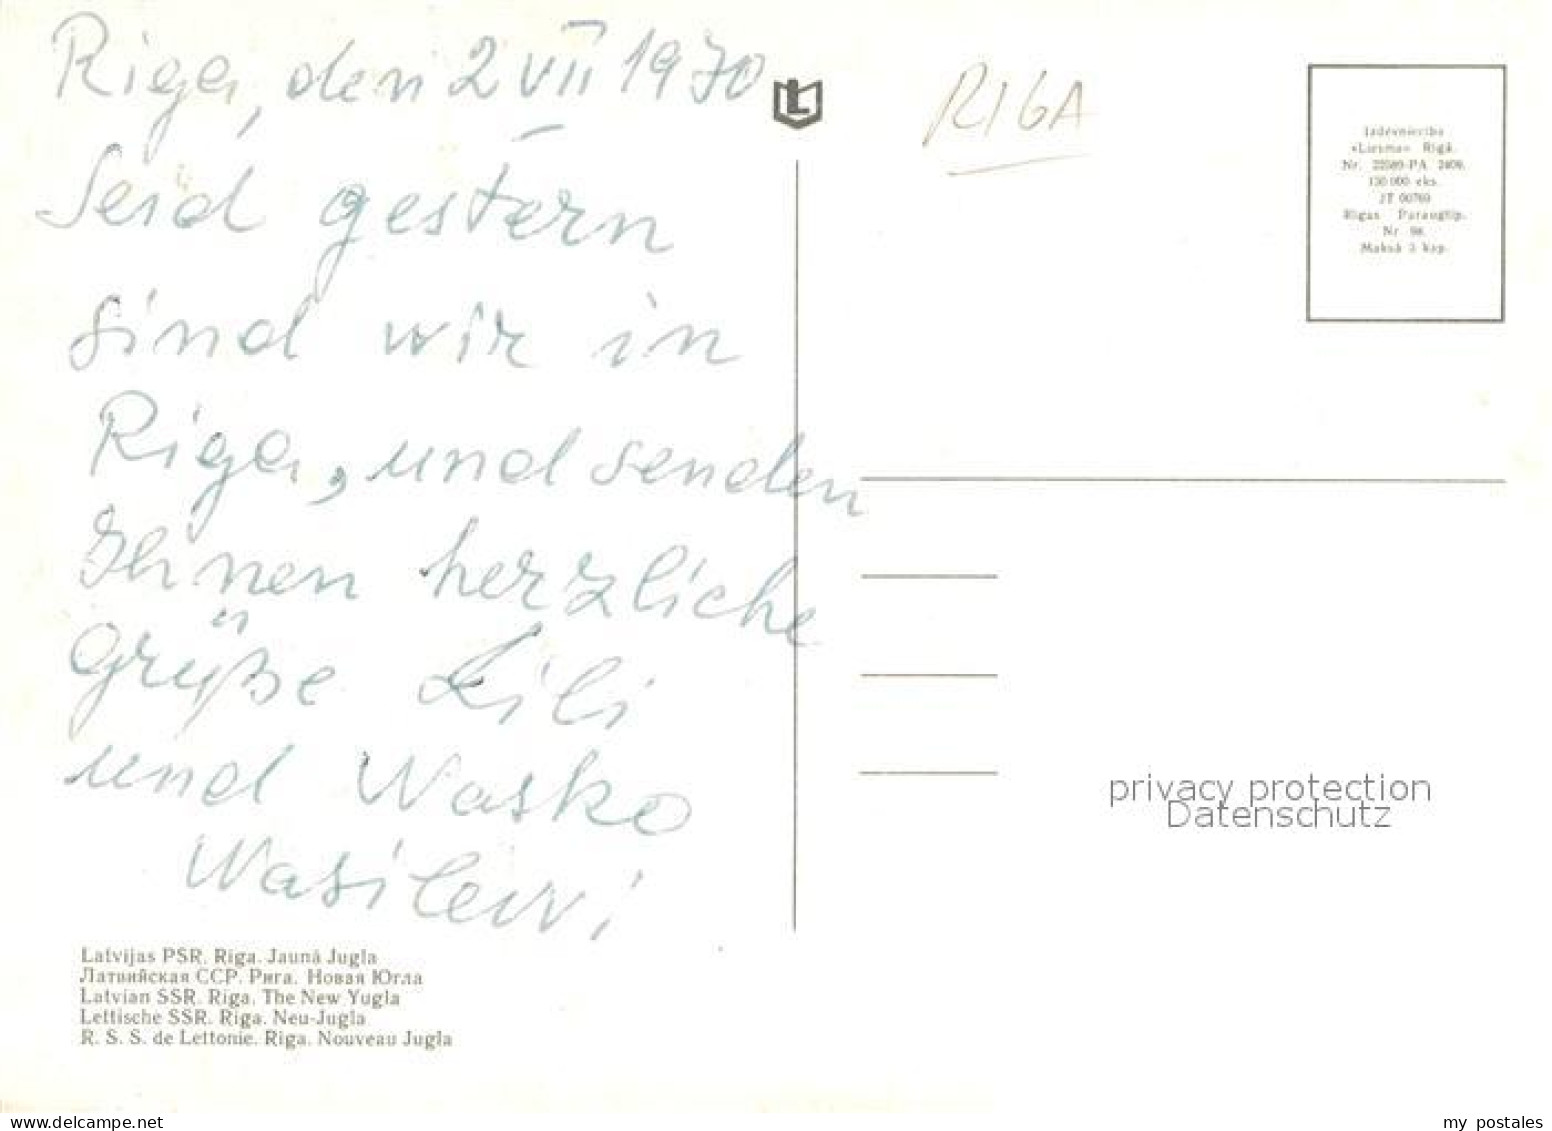 Riga, den 2 VII 1970
Seid gestern
sind wir in
Riga, und senden
Ihnen herzliche
Grüße Lili
und Wasko
Wasilewi
Latvijas PSR. Rīga. Jaunā Jugla
Латвийская ССР. Рига. Новая Югла
Latvian SSR. Riga. The New Yugla
Lettische SSR. Riga. Neu-Jugla
R. S. S. de Lettonie. Riga. Nouveau Jugla
L
RIGA
Izdevniecība
«Liesma» Rīgā.
Nr. 22589-PA 2409.
150 000 eks.
JT 00769
Rīgas Paraugtip.
Nr.
Maksā 3 kap.
privacy protection
Datenschutz
delcampe.net
my postales